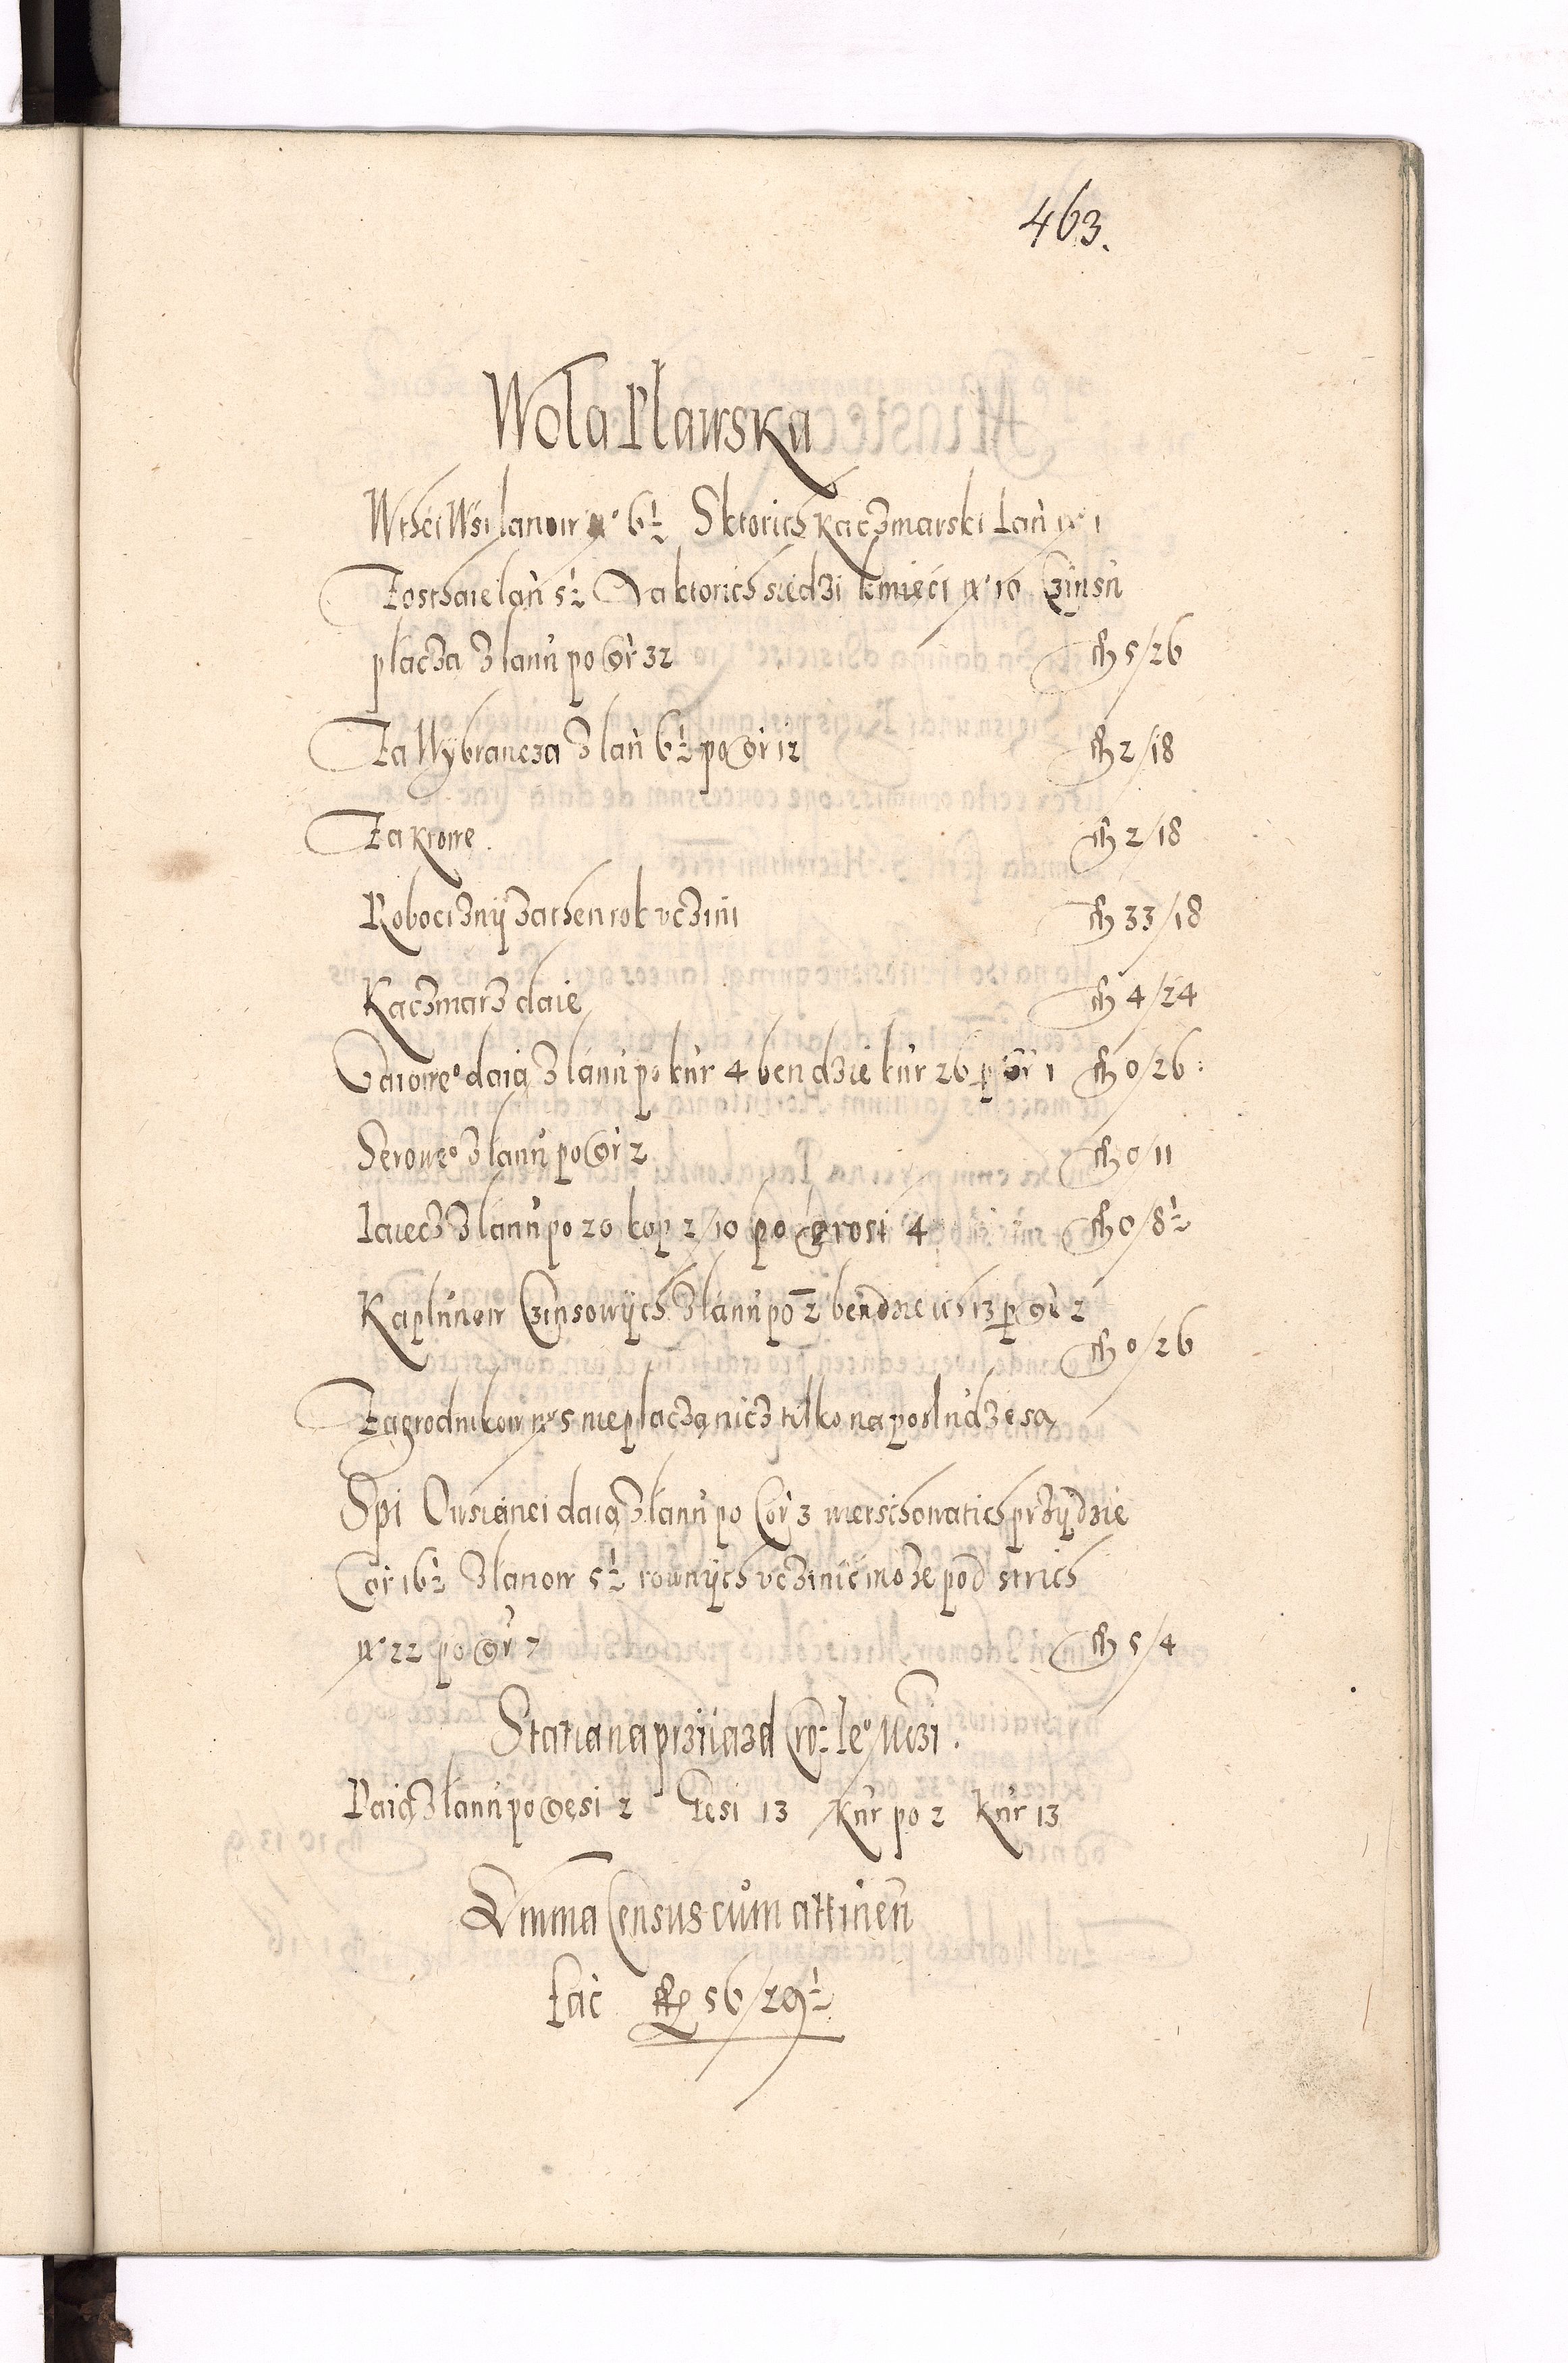 463.
Wola Plawska
W thei Wsi lanow nº 6½ S ktorich kaczmarski Łan nº 1
Zosthaie lan 5½ Na ktorich siedzi kmieci nº 10 Czinsu
placza z lanu po Gr 32 fl 5/26
Za Wÿbrancza z lan 6½ po Gr 12 fl 2/18
Za krowe. fl 2/18
Robociznÿ za then rok vczini fl 33/18
Kaczmarz daie fl 4/24
Gaiowe° daią z lanu po kur 4 bendzie kur 26 p Gr 1 fl 0/26
Serowe° z lanu po Gr 2 fl 0/11
Iaiecz z lanu po 20 kop 2/10 po grosi 4 fl 0/8½
Kaplunow Czinsowÿch z lanu po 2 bendzie ich 13 p Gr 2
fl 0/26
Zagrodnikow nº 5 nie placzą nicz tilko na posludze są
Spi Owsianei daią z lanu po Cor 3 wiersichowatich przÿdzie
Cor 16½ z lanow 5½ rownÿch vczinic może pod strich
nº 22 po Gr 7 fl 5/4
Statia na prziiazd Kro: Ie° Mczi.
Daią z lanu po Gęsi 2 Gesi 13 Kur po 2 Kur 13
Summa Census cum attinen
fac fl 56/29½